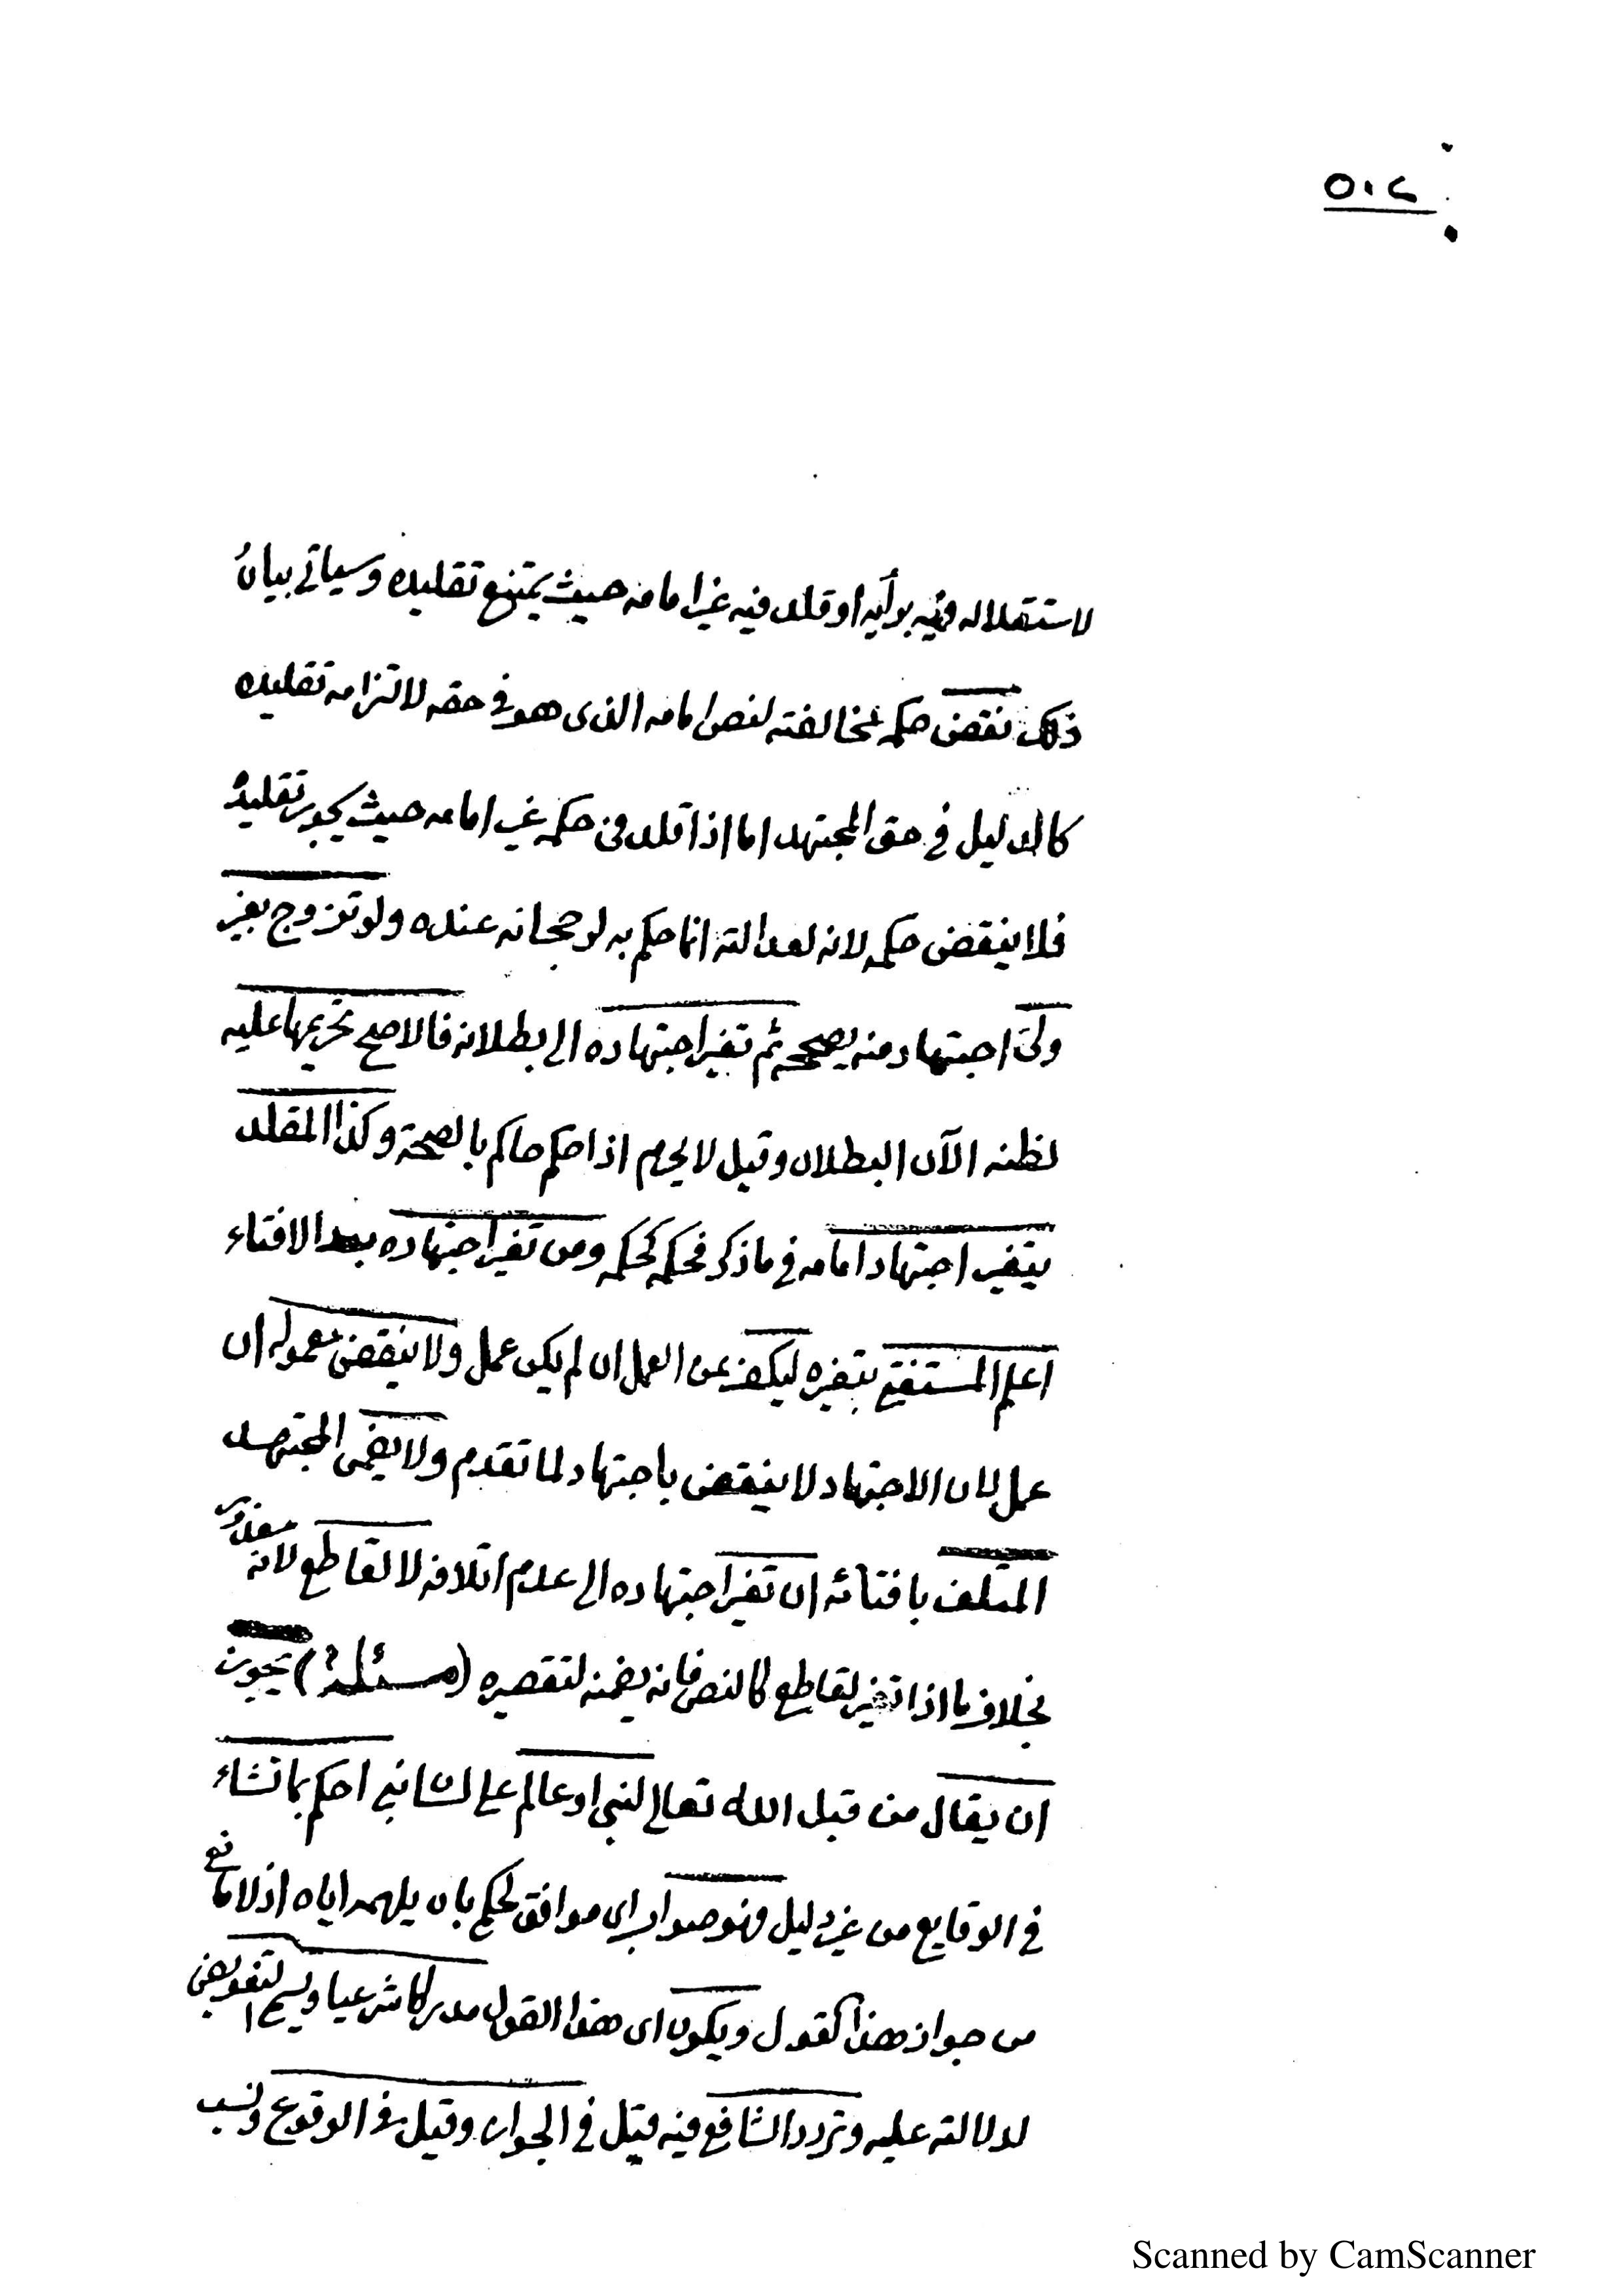 ٥٠٤
لاستقلاله فيه برأيه او قلد فيه غير امامه حيث يمتنع تقليده وسياتي بيان
ذلك نقض حكمه لمخالفته لنص امامه الذى هو فى حقه لالتزامه تقليده
كالدليل في حق المجتهد اما اذا قلد فى حكمه غير امامه حيث يجوز تقليده
فلا ينقض حكمه لانه لعدالته انما حكم به لرجحانه عنده ولو تزوج بغير
ولىّ اجتهاد منه يصححه ثم تغير اجتهاده الى بطلانه فالاصح تحريمها عليه
لظنه الآن البطلان وقيل لا يحرم اذا حكم حاكم بالصحة وكذا المقلد
يتغير اجتهاد امامه في ما ذكر فحكمه كحكمه ومن تغير اجتهاده بعد الافتاء
اعلم المستفتي بتغيره ليكف عن العمل ان لم يكن عمل ولا ينقض معموله ان
عمل لان الاجتهاد لا ينقض باجتهاد لما تقدم ولا يضمن المجتهد
المتلف بافتائه ان تغير اجتهاده الى عدم اتلافه لا لقاطع لانه معذور
بخلاف ما اذا تغير لقاطع كالنص فانه يضمنه لتقصيره (مسئلةٌ) يجوز
ان يقال من قبل الله تعالى لنبي او عالم على لسان نبي احكم بما تشاء
في الوقايع من غير دليل فهو صواب اى موافق لحكمى بان يلهمه اياه اذ لا مانع
من جواز هذا القول ويكون اى هذا القول مدركا شرعيا ويسمى التفويض
لدلالته عليه وتردد الشافعي فيه قيل في الجواز وقيل فى الوقوع ونسب
Scanned by CamScanner